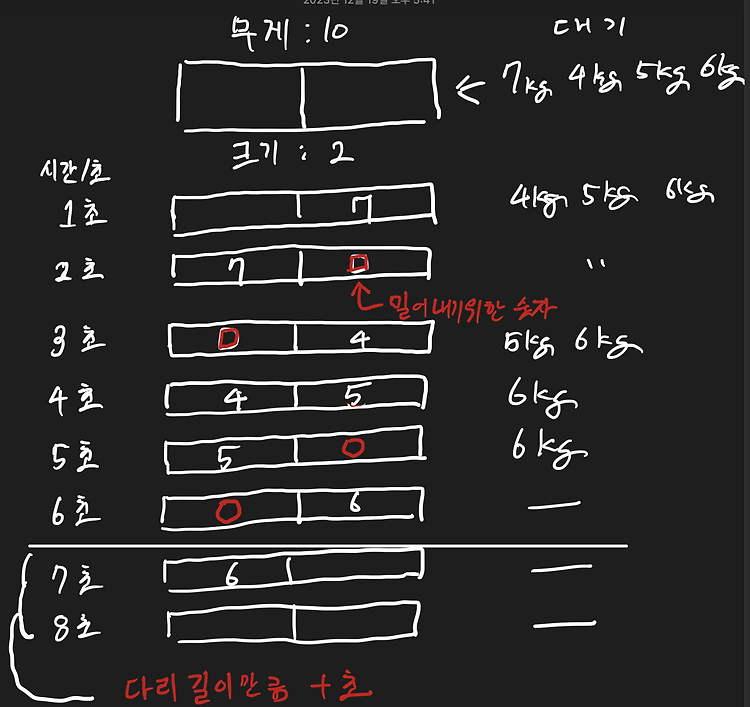 무게 : 10 대기
7kg 4kg 5kg 6kg
크기 : 2
시간/초
1초 7 4kg 5kg 6kg
2초 7 0 "
밀어내기위한 숫자
3초 0 4 5kg 6kg
4초 4 5 6kg
5초 5 0 6kg
6초 0 6 —
7초 6 —
8초 —
다리 길이만큼 + 초